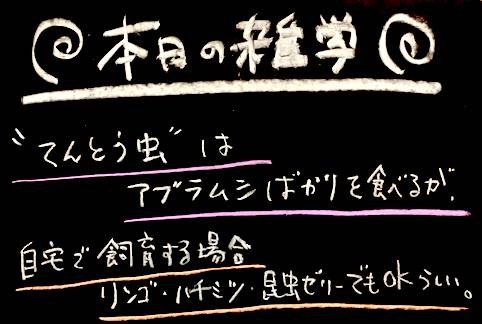 本日の雑学
“てんとう虫”は
アブラムシばかりを食べるが、
自宅で飼育する場合
リンゴ・ハチミツ・昆虫ゼリーでもOKらしい。